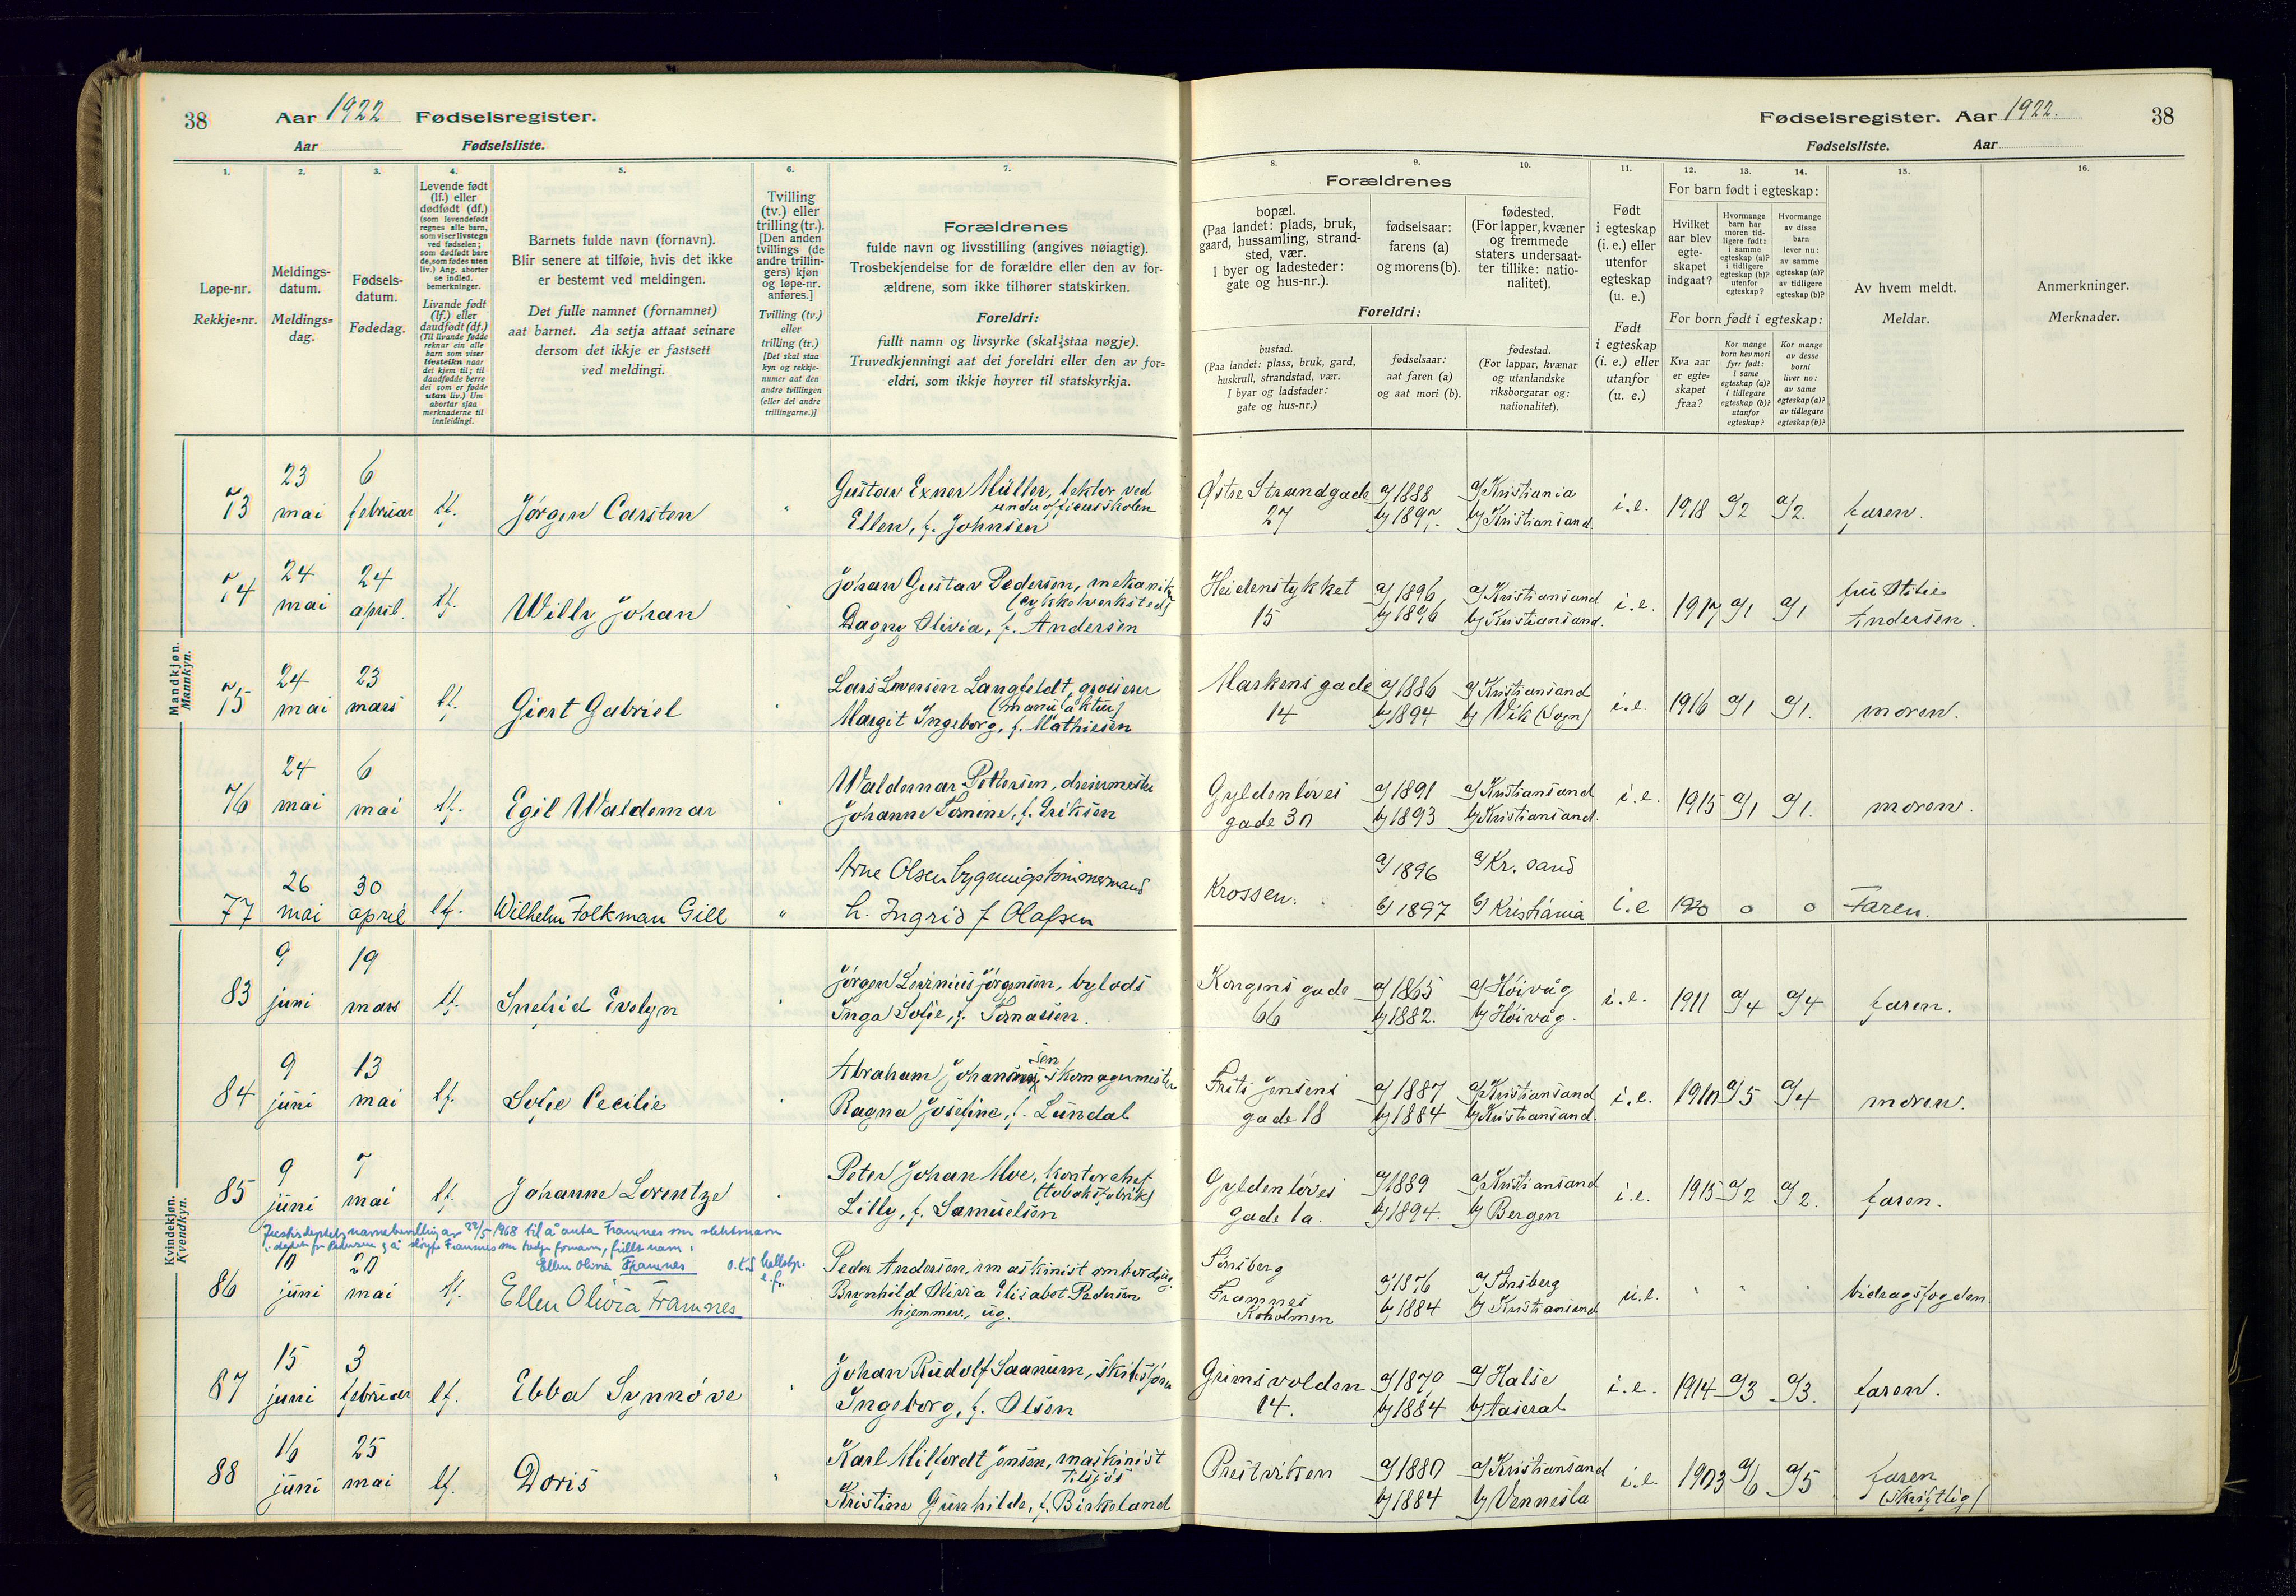 38
Aar 1922 Fødselsregister.
Aar Fødselsliste.
Fødselsregister. Aar 1922.
38
Fødselsliste. Aar
1. 2. 3. 4. 5. 6. 7.
Løpe-nr.
Rekkje=nr.
Meldings-
datum.
Meldings=
dag.
Fødsels-
datum.
Fødedag.
Levende født
(lf.) eller
dødfødt (df.)
(som levendefødt
regnes alle barn,
som viser livstegn
ved fødselen;
som dødfødt bare
de, som fødes uten
liv.) Ang. aborter
se indled.
bemerkninger.
Livande født
(lf.) eller
daudfødt (df.)
(Til livande fødde
reknar ein alle
barn som viser
livsteikn naar
dei kjem til; til
daudfødde berre
dei som er fødde
utan liv.) Um
abortar sjaa
merknaderne til
innleidingi.
Barnets fulde navn (fornavn).
Blir senere at tilføie, hvis det ikke
er bestemt ved meldingen.
Det fulle namnet (fornamnet)
aat barnet. Aa setja attaat seinare
dersom det ikkje er fastsett
ved meldingi.
Tvilling
(tv.) eller
trilling (tr.).
[Den anden
tvillings (de
andre trillin-
gers) kjøn
og løpe-nr.
anføres.]
Tvilling (tv.)
eller
trilling (tr.)
[Det skal staa
kyn og rekkje-
numer aat den
andre tvillingen
(eller dei andre
trillingarne.)]
Forældrenes
fulde navn og livsstilling (angives nøiagtig).
Trosbekjendelse for de forældre eller den av for-
ældrene, som ikke tilhører statskirken.
Foreldri:
fullt namn og livsyrke (skal staa nøgje).
Truvedkjenningi aat dei foreldri eller den av for=
eldri, som ikkje høyrer til statskyrkja.
8. 9. 10. 11. 12. 13. 14. 15. 16.
Forældrenes
bopæl.
(Paa landet: plads, bruk,
gaard, hussamling, strand-
sted, vær.
I byer og ladesteder:
gate og hus-nr.).
fødselsaar:
farens (a)
og morens (b).
fødested.
(For lapper, kvæner
og fremmede
staters undersaat-
ter tillike: natio-
nalitet).
Foreldri:
bustad.
(Paa landet: plass, bruk, gard,
huskrull, strandstad, vær.
I byar og ladstader:
gate og hus=nr.)
fødselsaar:
aat faren (a)
og aat mori (b).
fødestad.
(For lappar, kvænar
og utanlandske
riksborgarar og:
nationalitet).
Født
i egteskap
(i. e.) eller
utenfor
egteskap
(u. e.)
Født
i egteskap
(i. e.) eller
utanfor
(u. e.)
For barn født i egteskap:
Hvilket
aar blev
egte-
skapet
indgaat?
Hvormange
barn har
moren tid-
ligere født:
i samme
egteskap (a)?
i tidligere
egteskap (b)?
utenfor
egteskap?
Hvormange
av disse
barn
lever nu:
av samme
egteskap (a)?
av tidligere
egteskap (b)?
For born født i egteskap:
Kva aar
er egte=
skapet
fraa?
Kor mange
born hev mori
fyrr født:
i same
egteskap (a)?
i tidlegare
egteskap (b)?
utanfor
egteskap?
Kor mange
av desse
borni
liver no:
av same
egteskap (a)?
av tidlegare
egteskap (b)?
Av hvem meldt.
Meldar.
Anmerkninger.
Merknader.
Mandkjøn.
Mannkyn.
73 23 mai 6 februar lf. Jørgen Carsten " Gustav Exner Müller, lektor ved
underofficersskolen
Ellen, f. Johnsen
Østre Strandgade 27 a) 1888 b) 1897. a) Kristiania b) Kristiansand. i.e. 1918 a) 2 a) 2. faren.
74 24 mai 24 april. lf. Willy Johan " Johan Gustav Pedersen, mekaniker
(cykkelverksted)
Dagny Olivia, f. Andersen
Heidenstykket 15 a) 1896, b) 1896 a) Kristiansand b) Kristiansand. i.e. 1917 a) 1 a) 1 fru Otilie Andersen.
75 24 mai 23 mars lf. Giert Gabriel " Lars Leversen Langfeldt, grosserer
(manufaktur)
Margit Ingeborg, f. Mathiesen
Markens gade 14 a) 1886 b) 1894 a) Kristiansand b) Vik (Sogn) i.e. 1916 a) 1 a) 1. moren.
76 24 mai 6 mai lf. Egil Waldemar " Waldemar Pettersen, dreiermester
Johanne Tomine, f. Eriksen
Gyldenløves gade 30 a) 1891 b) 1893 a) Kristiansand b) Kristiansand. i.e. 1915 a) 1 a) 1. moren.
77 26 mai 30 april lf. Wilhelm Folkman Gill " Arne Olsen bygningstømmermand
h. Ingrid f Olafsen
Krossen. a) 1896 b) 1897 a) Kr. sand b) Kristiania i.e 1920 o o Faren.
Kvindekjøn.
Kvendkyn.
83 9 juni 19 mars lf. Snefrid Evelyn Jørgen Levinius Jørgensen, bylods
Inga Sofie, f. Tomassen.
Kongens gade 66 a) 1865 b) 1882. a) Høivåg b) Høivåg. i.e. 1911 a) 4 a) 4 faren.
84 9 juni 13 mai lf. Sofie Cecilie " Abraham Johansen skomagermester
Ragna Josefine, f. Lundal
Frits Jensens gade 18 a) 1887 b) 1884 a) Kristiansand b) Kristiansand. i.e. 1910 a) 5 a) 4 moren.
85 9 juni 7 mai lf. Johanne Lorentze " Peter Johan Moe, kontorchef
(tobaksfabrik)
Lilly, f. Samuelsen
Gyldenløves gade 1a. a) 1889 b) 1894. a) Kristiansand b) Bergen i.e. 1915 a) 2 a) 2. faren.
Justisdeptets navnebevilling av 22/5-1968 til å anta Framnes som slektsnavn
i stedet for Pedersen og å sløyfe Framnes som tredje fornavn, fullt navn:
Ellen Olivia Framnes
86 10 juni 20 mai lf. Ellen Olivia Framnes Peder Andersen, maskinist ombord, ug.
Brynhild Olivia Elisabet Pedersen
hjemmev., ug.
Tønsberg Framnes Koholmen a) 1876 b) 1884 a) Tønsberg b) Kristiansand u.e. " " " bidragsfogden
87 15 juni 3 februar lf. Ebba Synnøve " Johan Rudolf Saanum, skibsfører
Ingeborg, f. Olsen
Grimsvolden 14. a) 1870 b) 1884 a) Halse b) Aaseral i.e. 1914 a) 3 a) 3. faren.
88 16 juni 25 mai lf. Doris " Karl Milfordt Jensen, maskinist
tilsjøs
Kristine Gunhilde, f. Birkeland
Prestviken a) 1880 b) 1884 a) Kristiansand b) Vennesla i.e. 1903 a) 6 a) 5 faren (skriftlig)